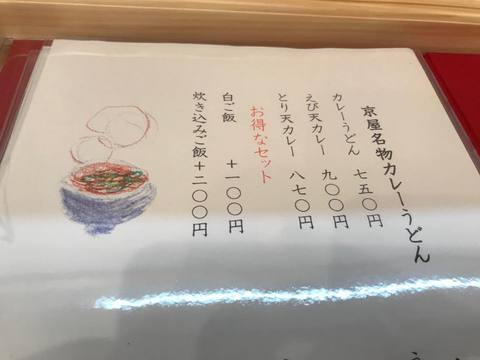 京屋名物カレーうどん
カレーうどん 七五〇円
えび天カレー 九〇〇円
とり天カレー 八七〇円
お得なセット
白ご飯 +一〇〇円
炊き込みご飯+二〇〇円